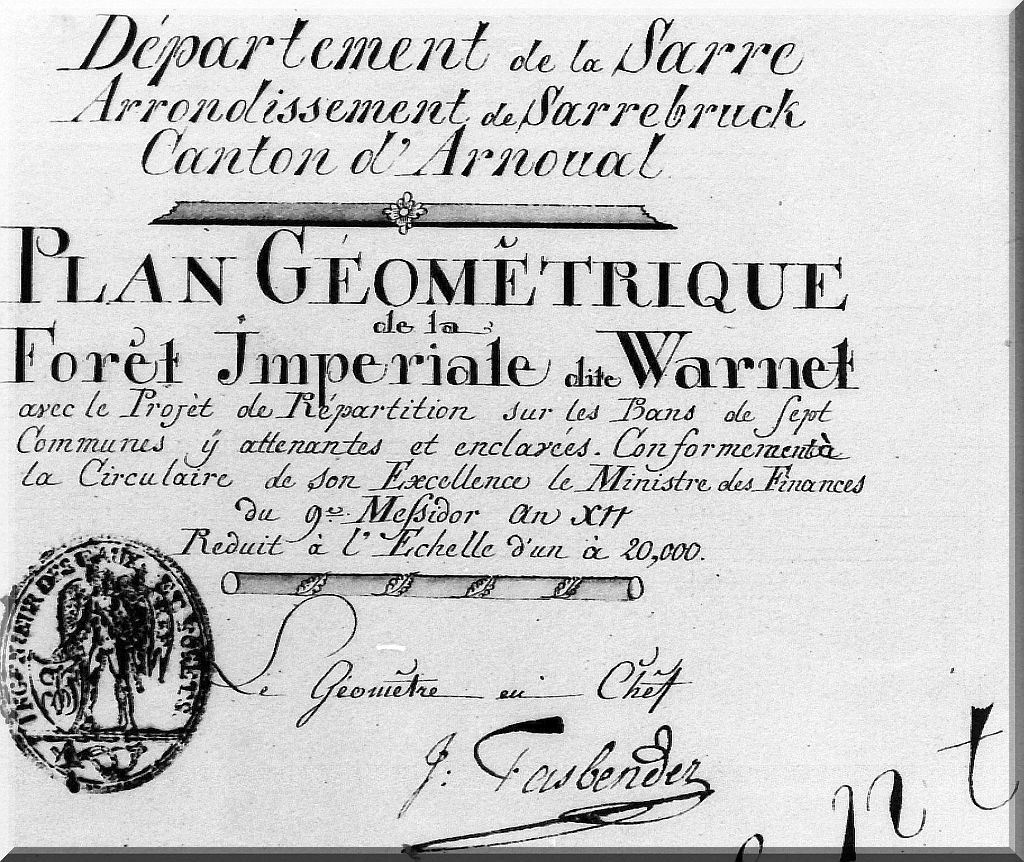 Département de la Sarre
Arrondissement de Sarrebruck
Canton d'Arnoual
PLAN GÉOMÊTRIQUE
de la
Forêt Imperiale dite Warnet
avec le Projèt de Répartition sur les Bans de sept
Communes ÿ attenantes et enclavées. Conformement à
la Circulaire de son Excellence le Ministre des Finances
du 9.e Messidor An XII
Reduit à l'Echelle d'un à 20,000.
INGENIEUR DES EAUX ET FORETS
Le Géomètre en Chéf
J. Fasbender
nt